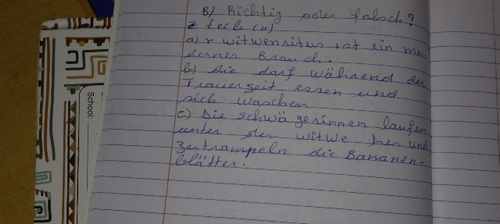 B/ Richtig oder falsch?
2 teile (n)
a) r witwenritus ist ein mo
derner Brauch.
b) die darf während der
Trauerzeit essen und
sich waschen
c) Die schwägerinnen laufen
unter der witwe her und
zertrampeln die Bananen-
blätter.
School: